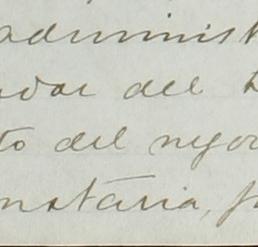 administ
ador del
to del nego
nataria,